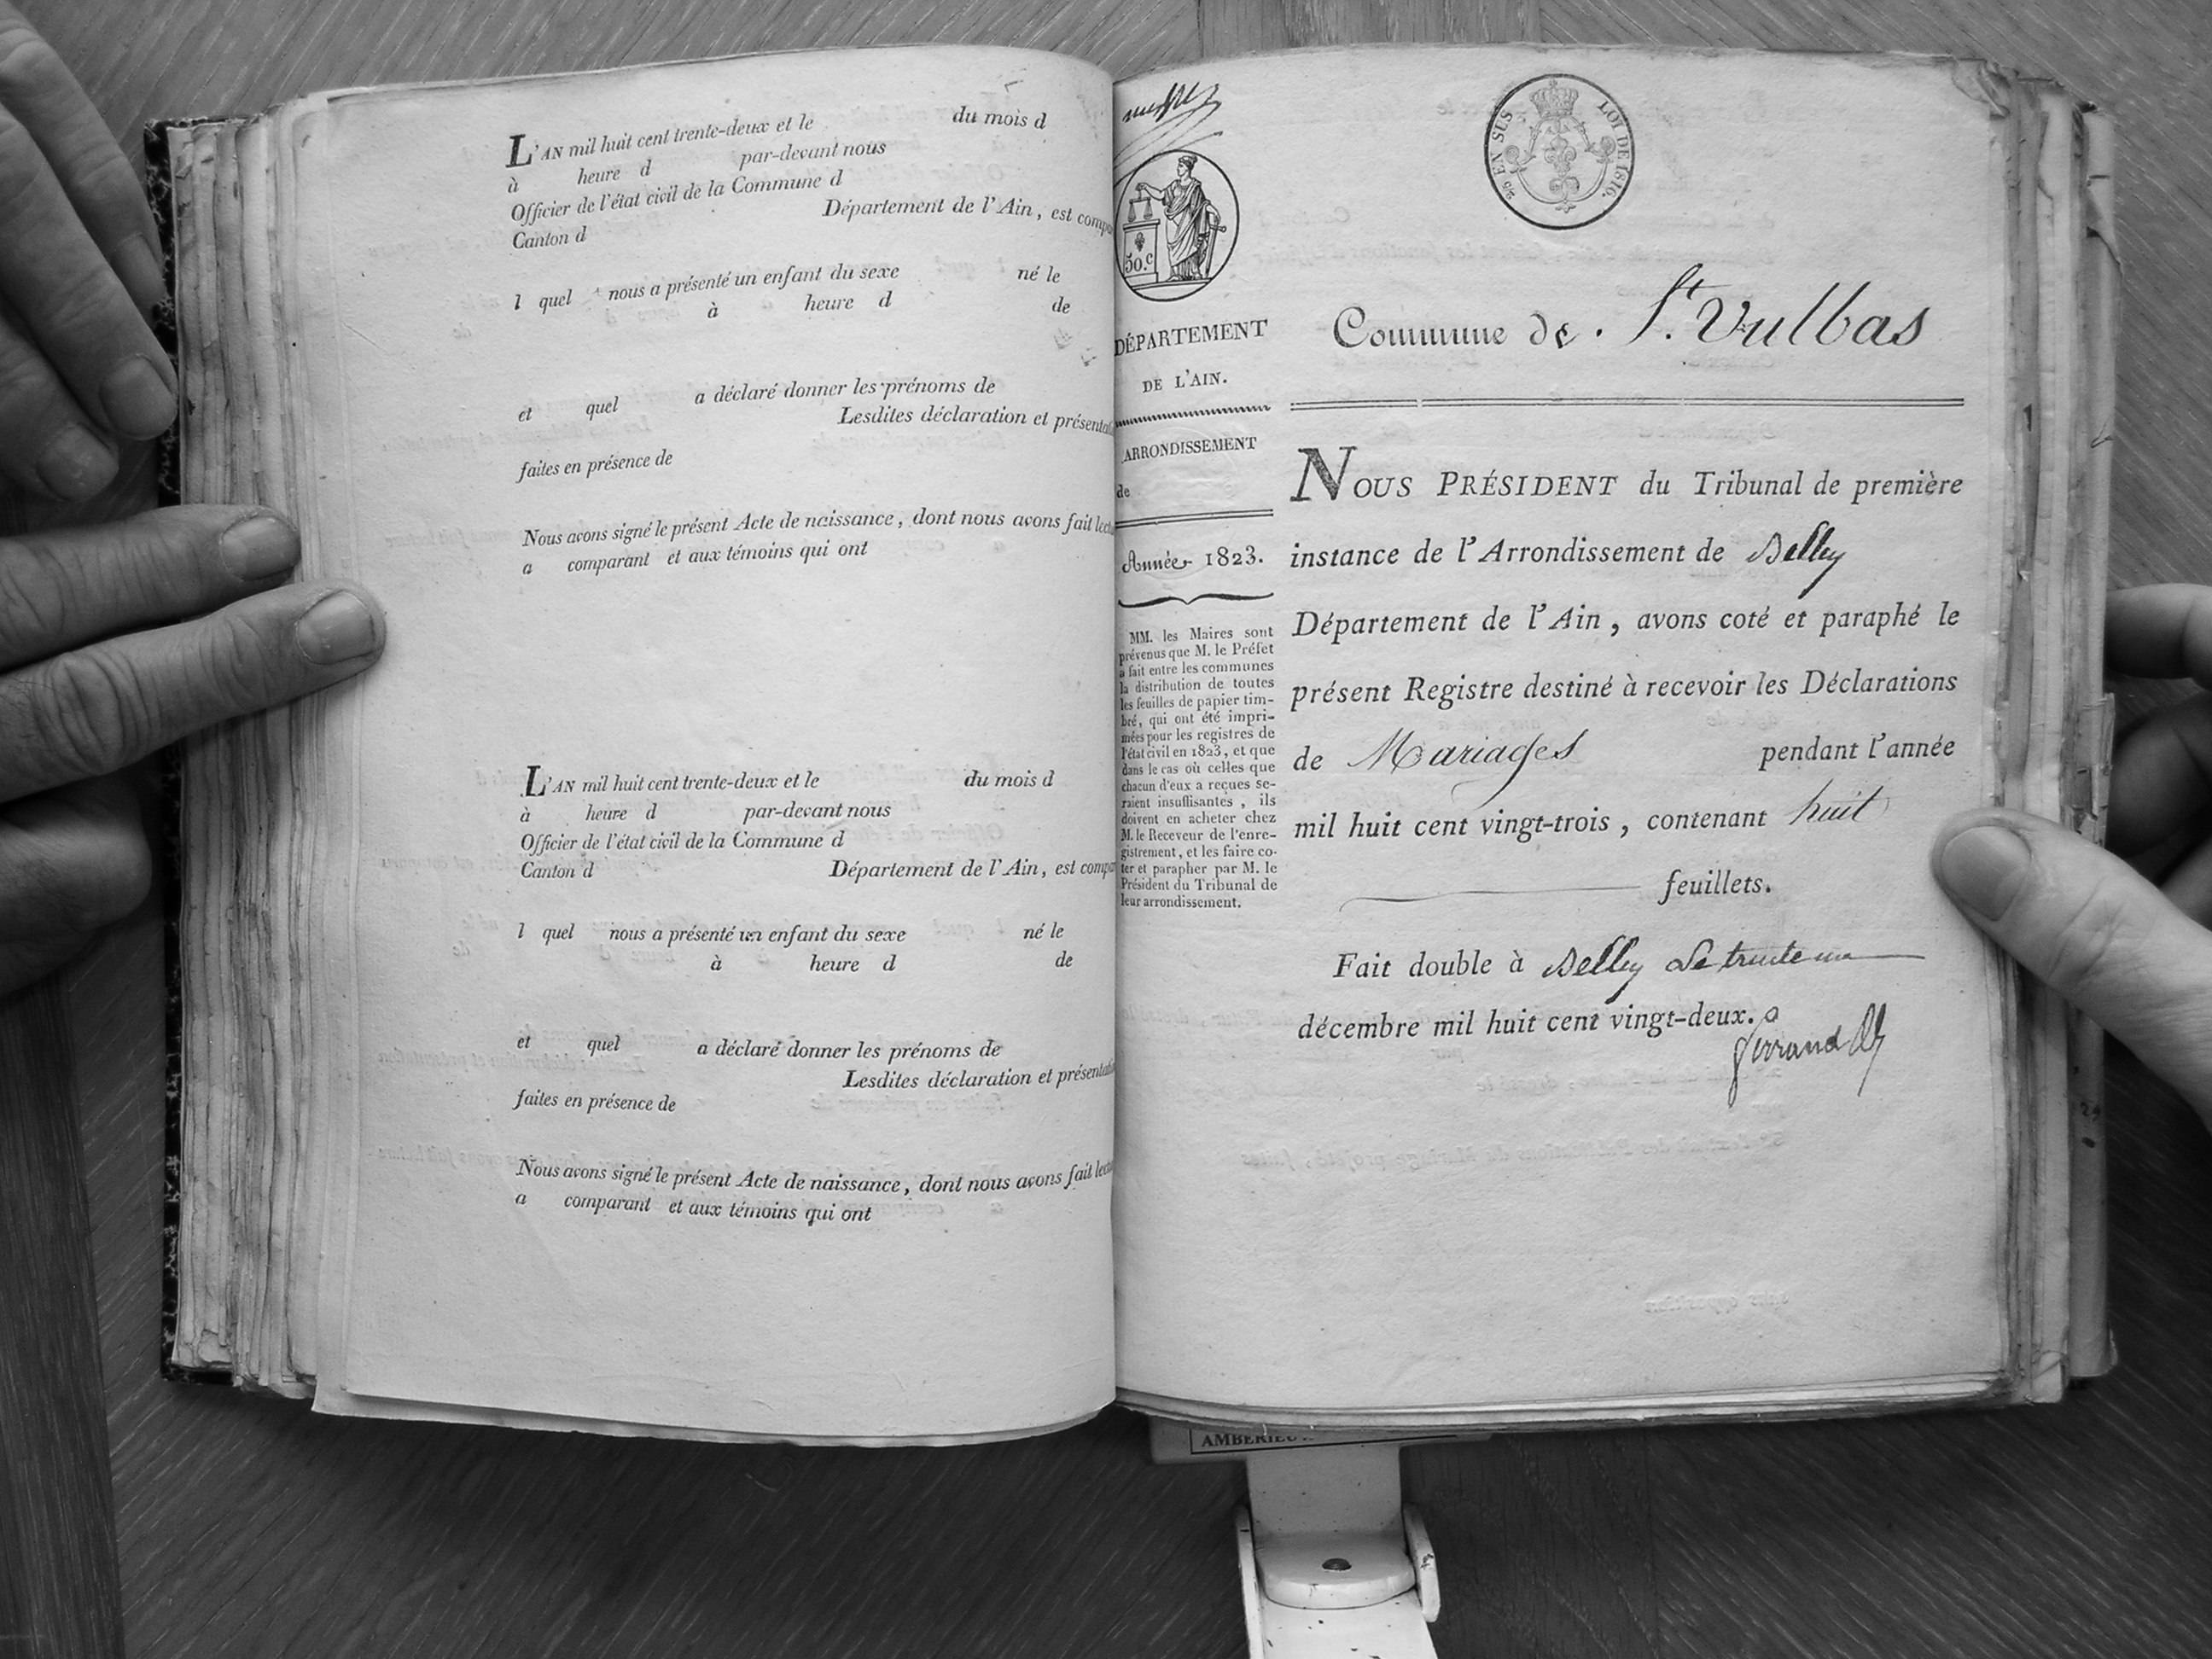 L'AN mil huit cent trente-deux et le du mois d
à heure d par-devant nous
Officier de l'état civil de la Commune d
Canton d Département de l'Ain, est compa
l quel nous a présenté un enfant du sexe né le
à heure d de
et quel a déclaré donner les prénoms de
Lesdites déclaration et présentati
faites en présence de
Nous avons signé le présent Acte de naissance, dont nous avons fait lectu
a comparant et aux témoins qui ont
L'AN mil huit cent trente-deux et le du mois d
à heure d par-devant nous
Officier de l'état civil de la Commune d
Canton d Département de l'Ain, est compa
l quel nous a présenté un enfant du sexe né le
à heure d de
et quel a déclaré donner les prénoms de
Lesdites déclaration et présentati
faites en présence de
Nous avons signé le présent Acte de naissance, dont nous avons fait lectu
a comparant et aux témoins qui ont
50.c
EN SUS LOI DE 1816.
DÉPARTEMENT
DE L'AIN.
ARRONDISSEMENT
de
Année 1823.
MM. les Maires sont
prévenus que M. le Préfet
a fait entre les communes
la distribution de toutes
les feuilles de papier tim-
bré, qui ont été impri-
mées pour les registres de
l'état civil en 1823, et que
dans le cas où celles que
chacun d'eux a reçues se-
raient insuffisantes, ils
doivent en acheter chez
M. le Receveur de l'enre-
gistrement, et les faire co-
ter et parapher par M. le
Président du Tribunal de
leur arrondissement.
Commune de St. Vulbas
NOUS PRÉSIDENT du Tribunal de première
instance de l'Arrondissement de Belley
Département de l'Ain, avons coté et paraphé le
présent Registre destiné à recevoir les Déclarations
de Mariages pendant l'année
mil huit cent vingt-trois, contenant huit
feuillets.
Fait double à Belley le trente un
décembre mil huit cent vingt-deux.
AMBERIEU